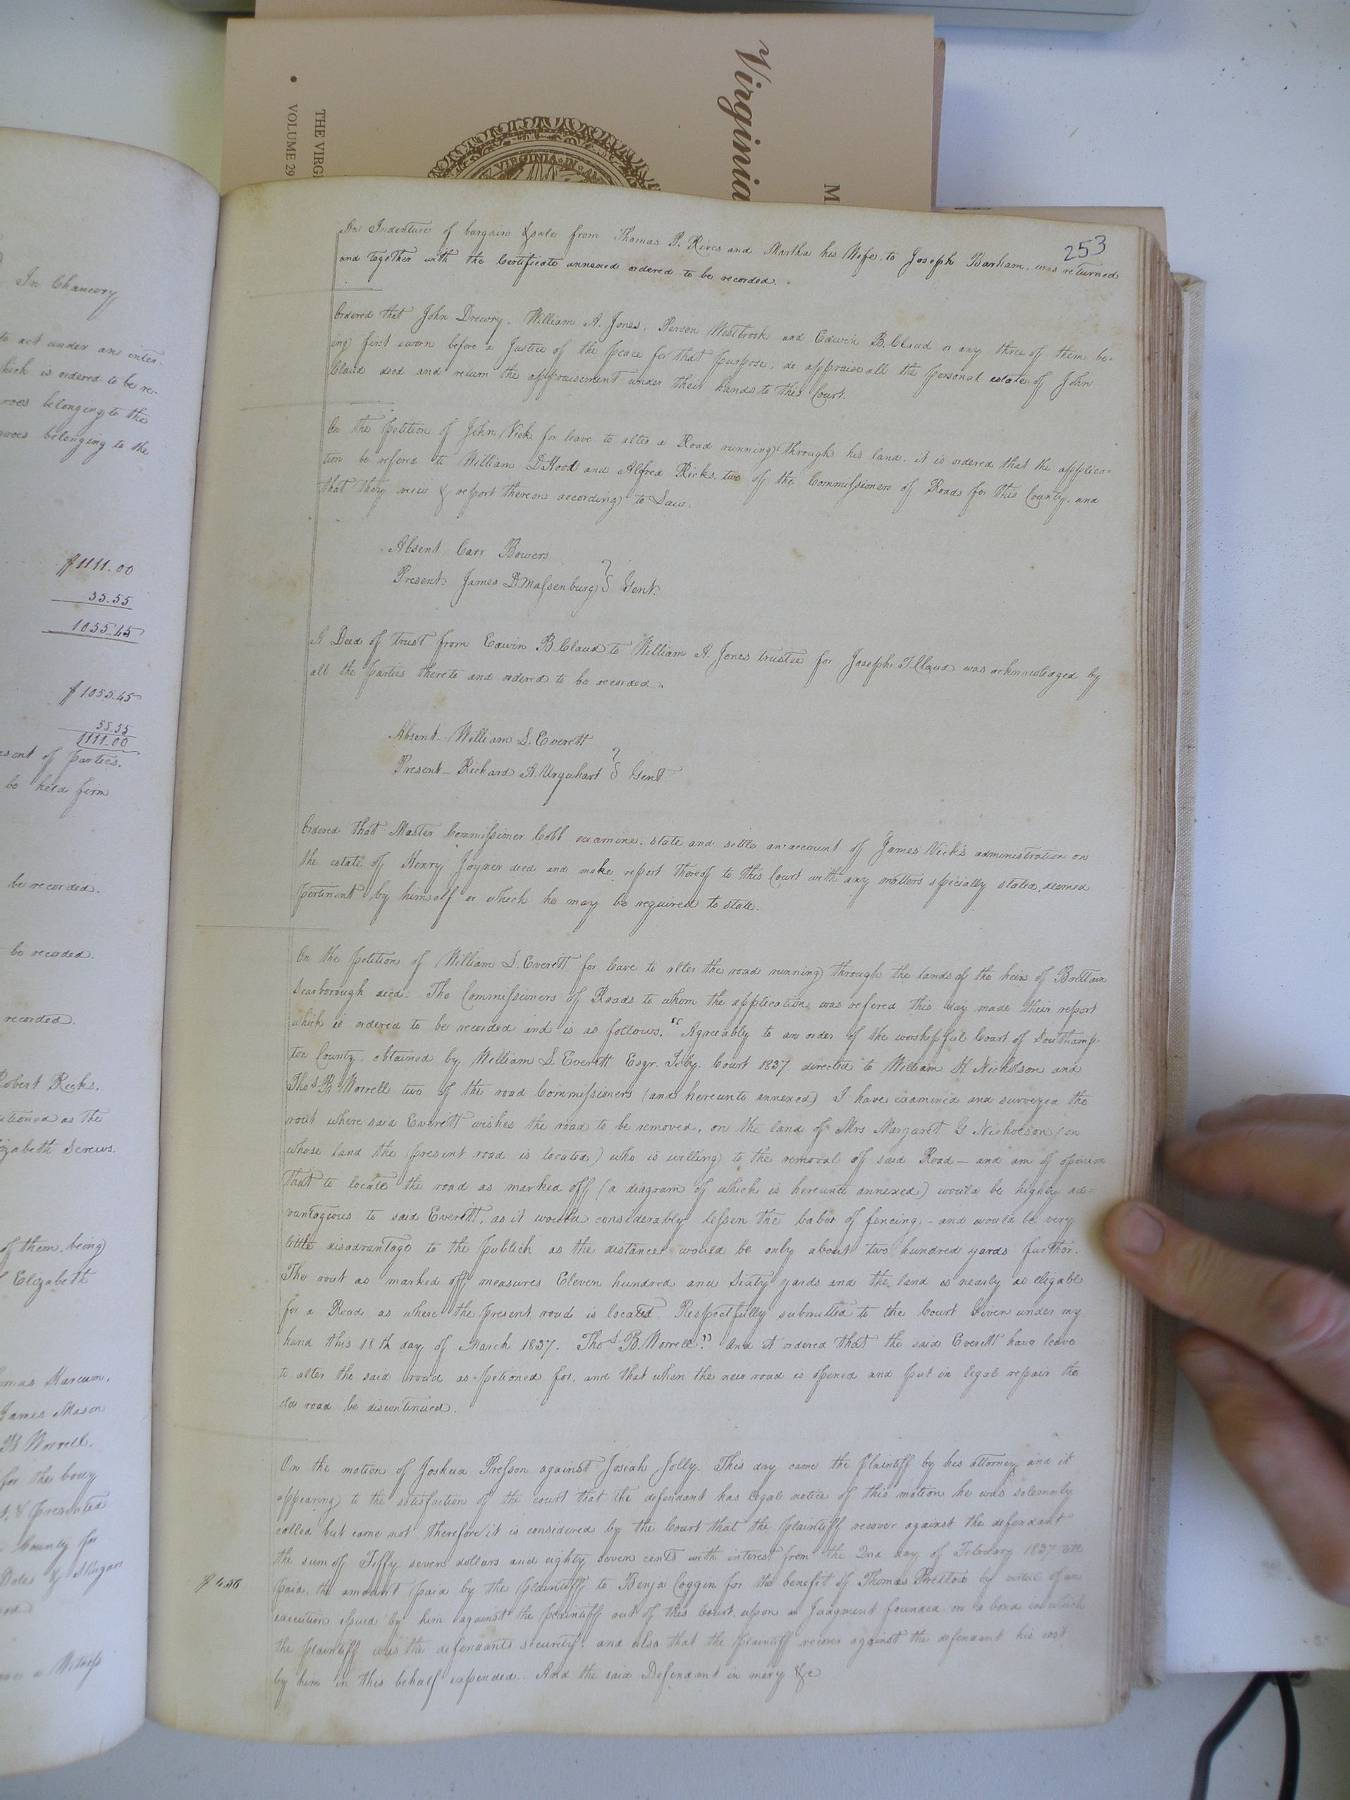 Virginia
M
THE VIRG
VOLUME 29
VIRGINIA IN
253
An Indenture of bargain & sale from Thomas P. Rives and Martha his Wife to Joseph Barham was returned
and together with the Certificate annexed ordered to be recorded.
Ordered that John Drewry, William A. Jones, Person Westbrook and Edwin B. Claud or any three of them be-
ing first sworn before a Justice of the peace for that purpose, do appraise all the personal estate of John
Claud decd and return the appraisement under their hands to this Court.
On the Petition of John Vick for leave to alter a Road running through his land, it is ordered that the applica-
tion be refered to William D. Hood and Alfred Ricks, two of the Commissioners of Roads for this County, and
that they view & report thereon according to Law.
Absent Carr Bowers
Present James B. Massenburg } Gent.
A Deed of trust from Edwin B. Claud to William A. Jones trustee for Joseph T. Claud was acknowledged by
all the parties thereto and ordered to be recorded.
Absent William S. Everett
Present Richard A. Urquhart } Gent
Ordered that Master Commissioner Cobb examine, state and settle an account of James Vick's administration on
the estate of Henry Joyner decd and make report thereof to this Court with any matters specially stated, deemed
pertinent by himself or which he may be required to state.
On the petition of William S. Everett for leave to alter the road running through the lands of the heirs of Brittain
Scarborough decd. The Commissioners of Roads to whom the application was refered this day made their report
which is ordered to be recorded and is as follows. "Agreeably to an order of the worshipful Court of Southamp-
ton County, obtained by William S Everett Esqr. Feby. Court 1837 directed to William H Nicholson and
Thos B. Worrell two of the road Commissioners (and hereunto annexed) I have examined and surveyed the
rout where said Everett wishes the road to be removed, on the land of Mrs Margaret G Nicholson (on
whose land the present road is located) who is willing to the removal of said Road — and am of opinion
that to locate the road as marked off (a diagram of which is hereunto annexed) would be highly ad-
vantagious to said Everett, as it would considerably lessen the labor of fencing, - and would be very
little disadvantage to the publick as the distance would be only about two hundred yards further.
The rout as marked off measures Eleven hundred and Sixty yards and the land is nearly as eligable
for a Road as where the present road is located. Respectfully submitted to the Court Given under my
hand this 18th day of March 1837. Thos B. Worrell" And it ordered that the said Everett have leave
to alter the said road as petioned for, and that when the new road is opened and put in legal repair the
old road be discontinued.
On the motion of Joshua Presson against Josiah Jolly. This day came the Plaintiff by his attorney and it
appearing to the satisfaction of the court that the defendant has legal notice of this motion he was solemnly
called but came not therefore it is considered by the Court that the plaintiff recover against the defendant
the sum of Fiffy seven dollars and eighty seven cents with interest from the 2nd day of February 1837 till
paid, the amount paid by the plaintiff to Benja Coggin for the benefit of Thomas Pretlow by virtue of an
execution issued by him against the plaintiff out of this Court upon a Judgment founded on a bond in which
the plaintiff was the defendants security: and also that the plaintiff recover against the defendant his cost
by him in this behalf expended. And the said Defendant in mercy &c
In Chancery
to act under an inter-
which is ordered to be re-
belonging to the
belonging to the
$1111.00
55.55
1055.45
$1055.45
55.55
1111.00
of parties.
be held firm
be recorded.
be recorded.
recorded.
Robert Ricks.
as the
Elizabeth Screws.
of them being
Elizabeth
James Mason
Worrell.
for the body
presented
County for
a Witness